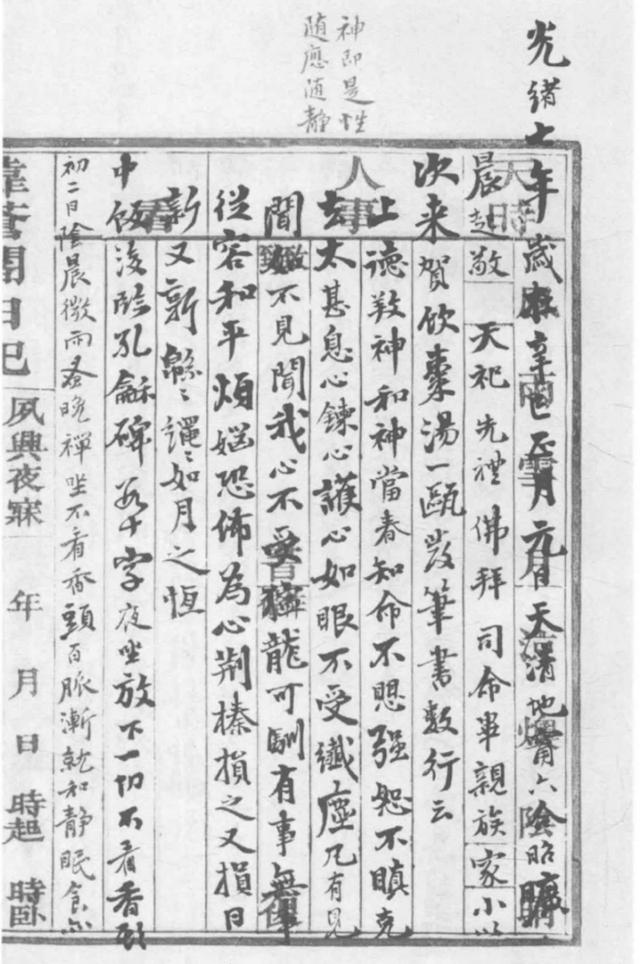 神即是性
随應随静
光緒七年歲在辛巳正月元日天清地甯六陰昭曠
晨起敬天祀先禮佛拜司命畢親族家小以
次来賀飲棗湯一甌發筆書數行云
上德敦神和神當春知命不思强恕不瞋克
去太甚息心鍊心護心如眼不受纖塵凡有見
聞如不見聞我心不受獰龍可馴有事無事
從容和平煩惱恐怖為心荆榛損之又損日
新又新緜緜繩繩如月之恆
中飯後臨孔龢碑若干字夜坐放下一切不看香頭
初二日陰晨微雨蚤晚禪坐不看香頭百脈漸就和静眠食亦
日記
夙興夜寐 年 月 日 時起 時卧
天時
人事